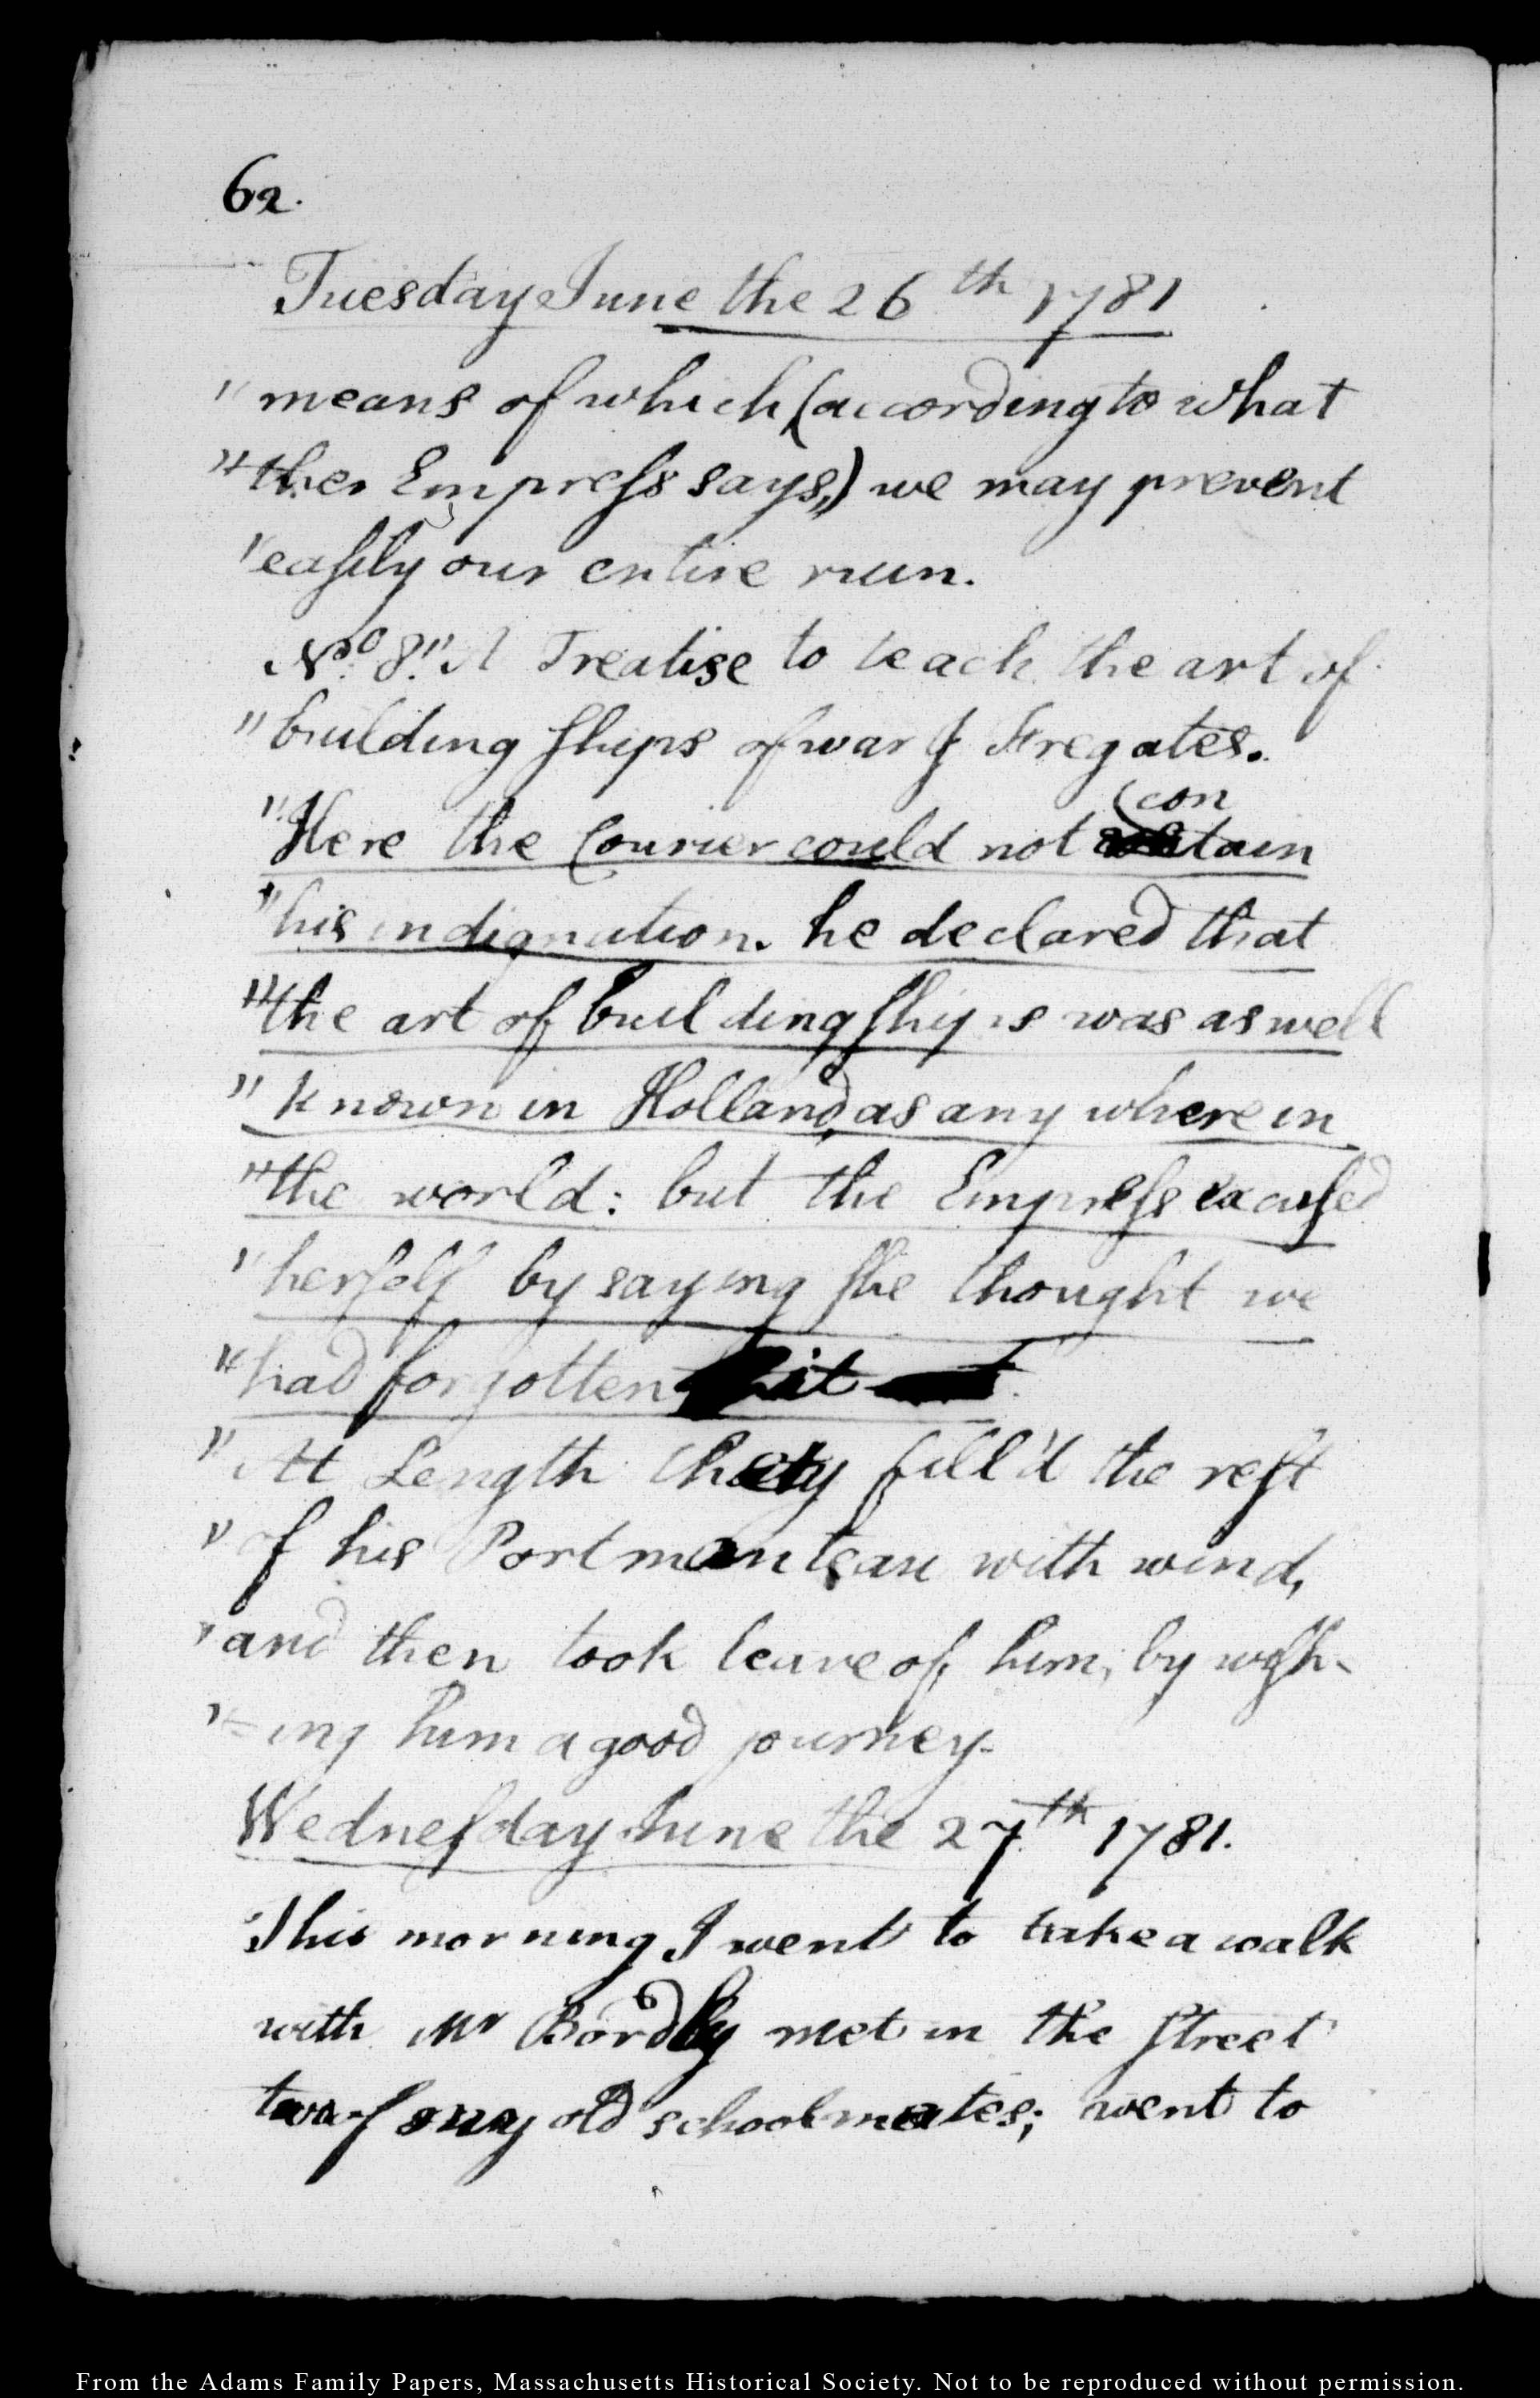 62.
Tuesday June the 26th 1781
" means of which (according to what
" the Empress says,) we may prevent
" easily our entire ruin.
No. 8." A Treatise to teach the art of
" building ships of war & Fregates.
" Here the Courier could not contain
" his indignation. he declared that
" the art of building ships was as well
" known in Holland, as any where in
" the world: but the Empress excused
" herself by saying she thought we
" had forgotten it
" At Length they fill'd the rest
" of his Portmanteau with wind,
" and then took leave of him, by wish-
" -ing him a good journey.
Wednesday June the 27th 1781.
This morning I went to take a walk
with Mr Bordly met in the street
two of my old schoolmates; went to
From the Adams Family Papers, Massachusetts Historical Society. Not to be reproduced without permission.